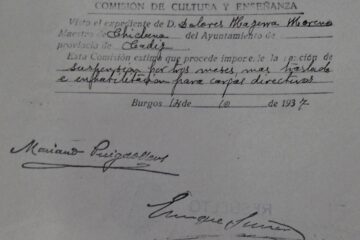 COMISIÓN DE CULTURA Y ENSEÑANZA
Visto el expediente de D. Dolores Moreno
Maestro de Chiclana del Ayuntamiento de
provincia de Cadiz
Esta Comisión estima que procede imponerle la sanción de
suspensión por tres meses, mas traslado
e inhabilitación para cargos directivos
Burgos 14 de 10 de 1937
Mariano Puigdollers
Enrique Suñer